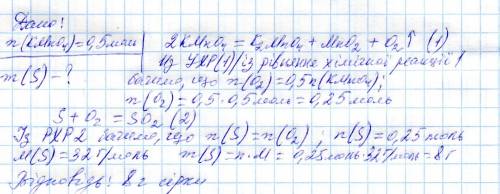 Дано!
n(KMnO₄)=0,5моль
m(S)-?
2KMnO₄=K₂MnO₄+MnO₂+O₂↑ (1)
Из УХР(1)/із рівняння хімічної реакції/
бачемо, що n(O₂)=0,5n(KMnO₄);
n(O₂)=0,5·0,5моль=0,25моль
S+O₂=SO₂(2)
Із РХР2 бачемо, що n(S)=n(O₂); n(S)=0,25моль
M(S)=32г/моль m(S)=n·M=0,25моль·32г/моль=8г
Відповідь: 8г сірки